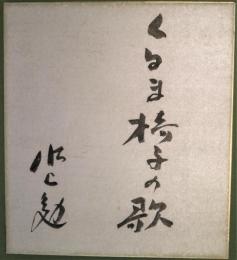 くるま椅子の歌
水上勉